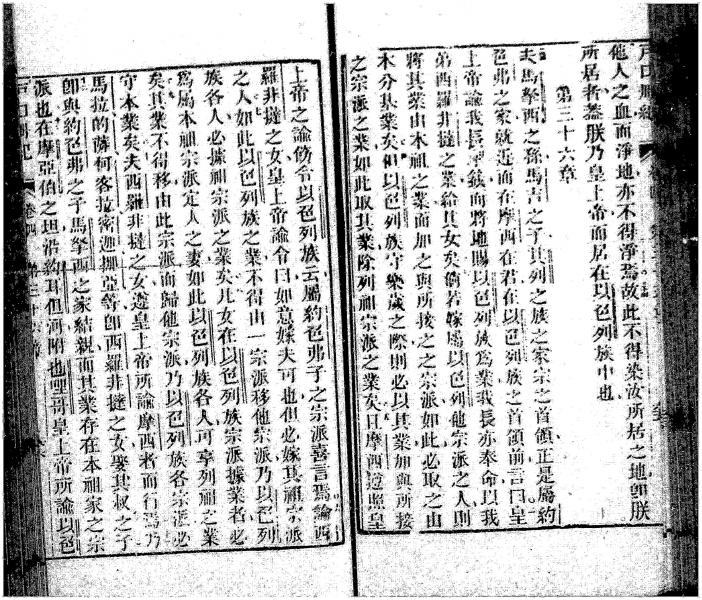 戶口冊紀
他人之血而淨地亦不得淨焉故此不得染汝所居之地卽朕
所居者葢朕乃皇上帝而居在以色列族中也
第三十六章
夫馬拏西之孫馬吉之子其列之族之家宗之首領正是屬約
色弗之家就近而在摩西在君在以色列族之首領前言曰皇
上帝論我長 籤而將地賜以色列族爲業我長亦奉命以我
弟西羅非撻之業給其女矣倘若嫁屬以色列他宗派之人則
將其業由本祖之業而加之與所接之之宗派如此必取之由
本分基業矣但以色列族守樂歲之際則必以其業加與所接
之宗派之業如此取其業除列祖宗派之業矣曰摩西遵照皇
上帝之諭飭令以色列族云屬約色弗子之宗派喜言焉論西
羅非撻之女皇上帝諭令曰如意嫁夫可也但必嫁其祖宗派
之人如此以色列族之業不得由一宗派移他宗派乃以色列
族各人必據祖宗派之業矣凡女在以色列族宗派據業者必
爲屬本祖宗派定人之妻如此以色列族各人可享列祖之業
矣其業不得移由此宗派而歸他宗派乃以色列族各宗派必
守本業矣夫西羅非撻之女遵皇上帝所諭摩西者而行焉乃
馬拉的薩柯客拉密迦挪亞等卽西羅非撻之女娶其叔之子
卽與約色弗之子馬拏西之家結親而其業存在本祖家之宗
派也在摩亞伯之坦沿約耳但河附也哩哥皇上帝所諭以色
戶口冊紀 卷四 第三十六章